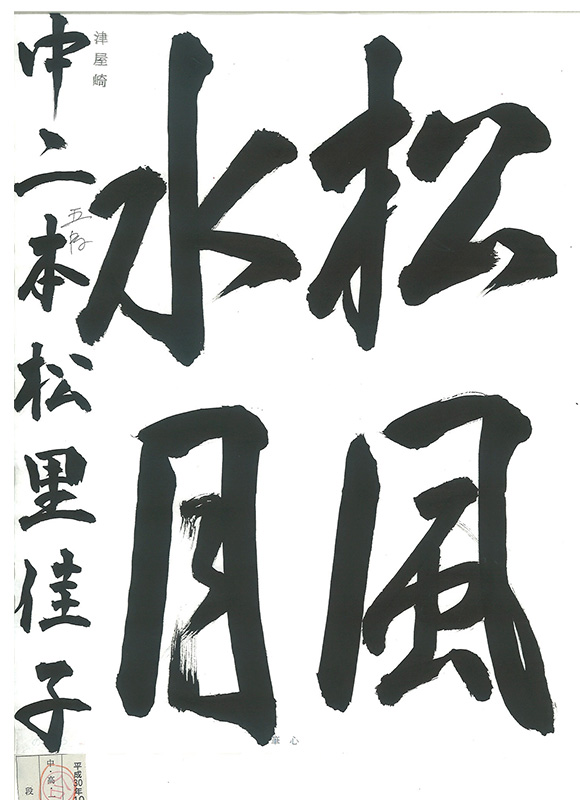 松風
水月
津屋崎
中二 本松里佳子
五段
心筆
平成30年10
中・高・一
段